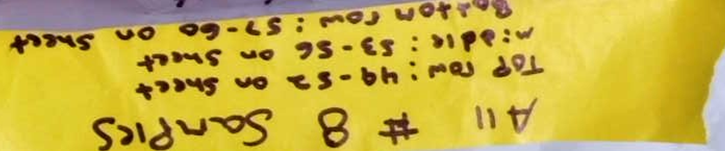 All # 8 Samples
Top row: 49-52 on sheet
middle: 53-56 on sheet
Bottom row: 57-60 on sheet